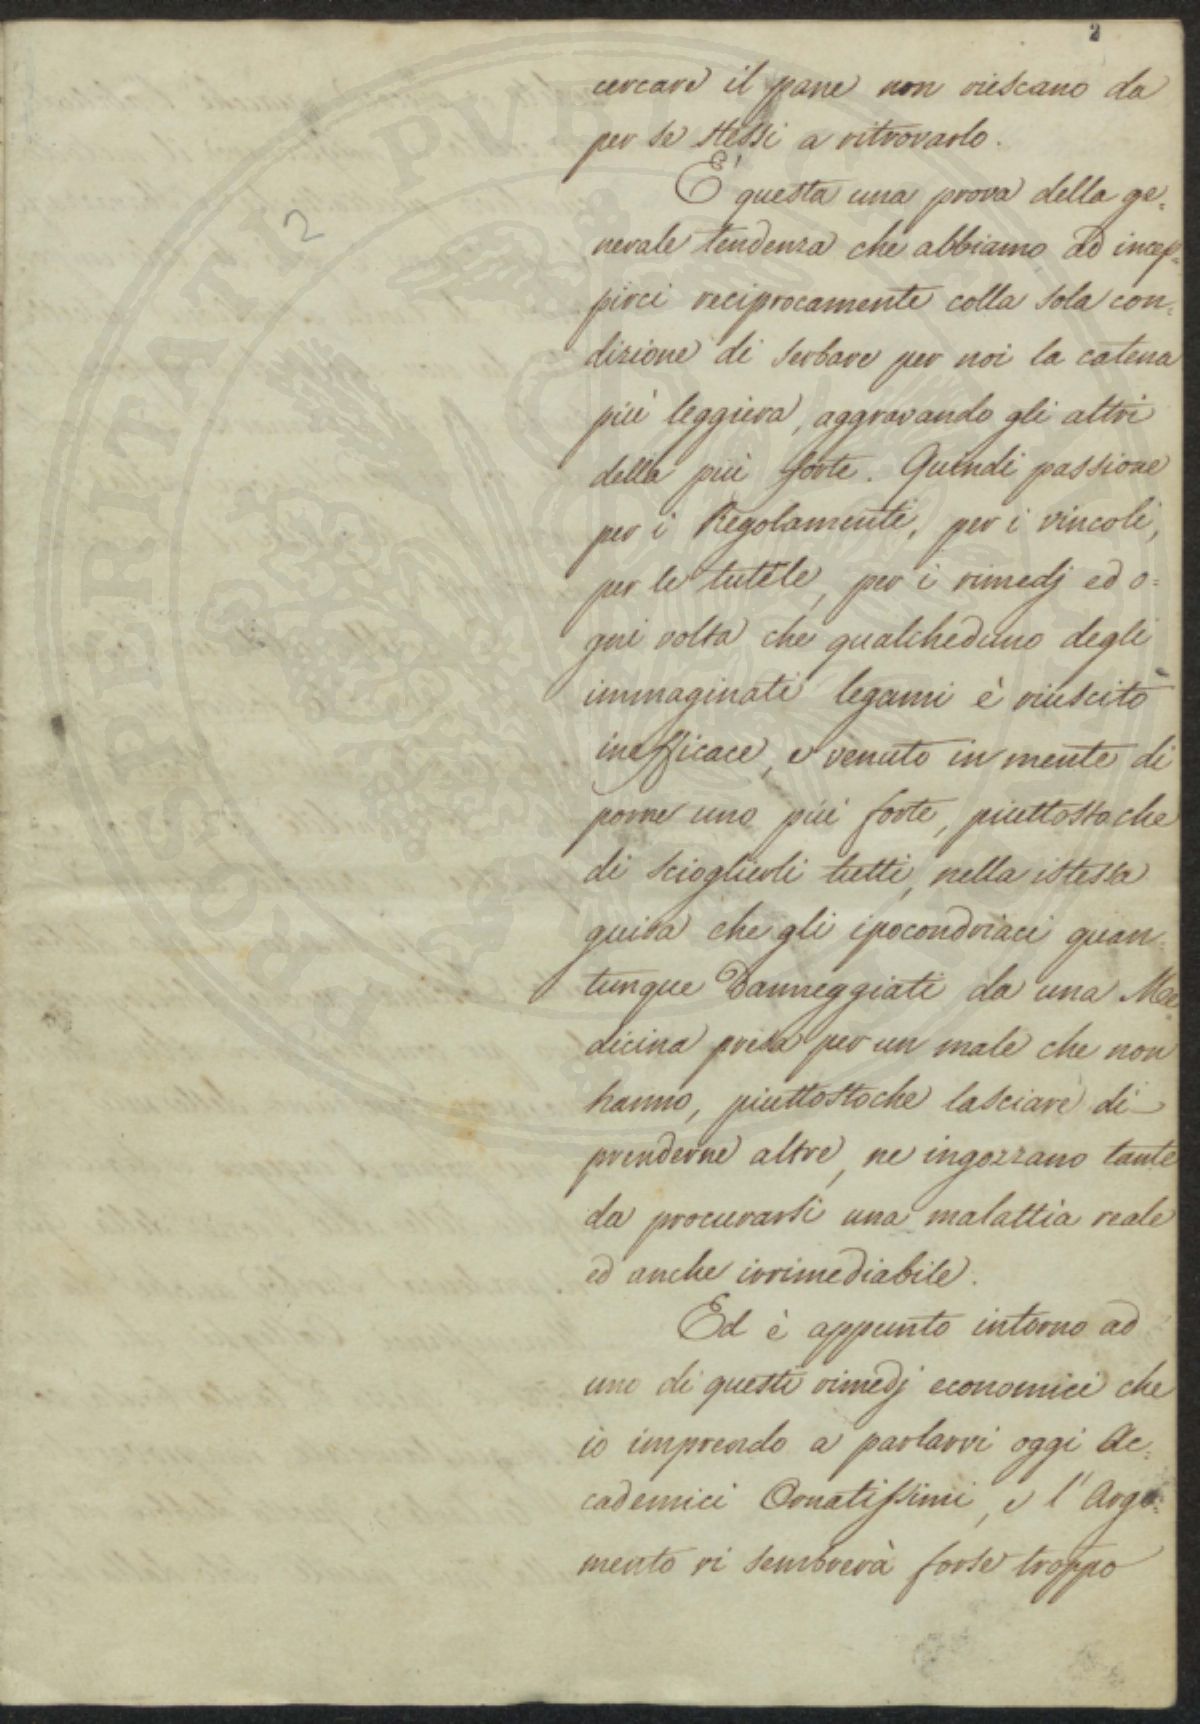 2
2
cercare il pane non riescano da
per se stessi a ritrovarlo.
E' questa una prova della ge=
nerale tendenza che abbiamo ad incep=
pirci reciprocamente colla sola con=
dizione di serbare per noi la catena
più leggiera, aggravando gli altri
della più forte. Quindi passione
per i Regolamenti, per i vincoli,
per le tutele, per i rimedj ed o=
gni volta che qualcheduno degli
immaginati legami è riuscito
inefficace, e venuto in mente di
porne uno più forte, piuttosto che
di scioglierli tutti, nella istessa
guisa che gli ipocondriaci quan=
tunque danneggiati da una Me=
dicina presa per un male che non
hanno, piuttostoche lasciare di
prenderne altre, ne ingozzano tante
da procurarsi una malattia reale
ed anche irrimediabile.
Ed è appunto intorno ad
uno di questi rimedj economici che
io imprendo a parlarvi oggi Ac=
cademici Ornatissimi, e l'Argo=
mento vi sembrerà forse troppo
PROSPERITATI PVBLICAE